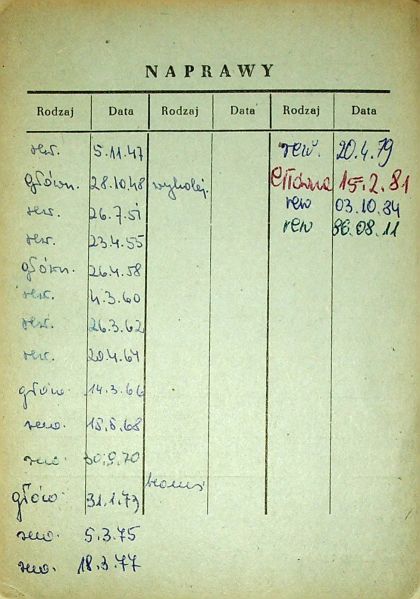 NAPRAWY
Rodzaj Data Rodzaj Data Rodzaj Data
rew. 5.11.47 rew. 20.4.79
główn. 28.10.48 wykolej. Główna 15.2.81
rew. 26.7.51 rew 03.10.84
rew. 23.4.55 rew 86.08.11
główn. 26.4.58
rew. 4.3.60
rew. 26.3.62
rew. 20.4.64
główn. 14.3.66
rew. 18.6.68
rew. 30.9.70
głów. 31.1.73
rew. 5.3.75
rew. 18.3.77